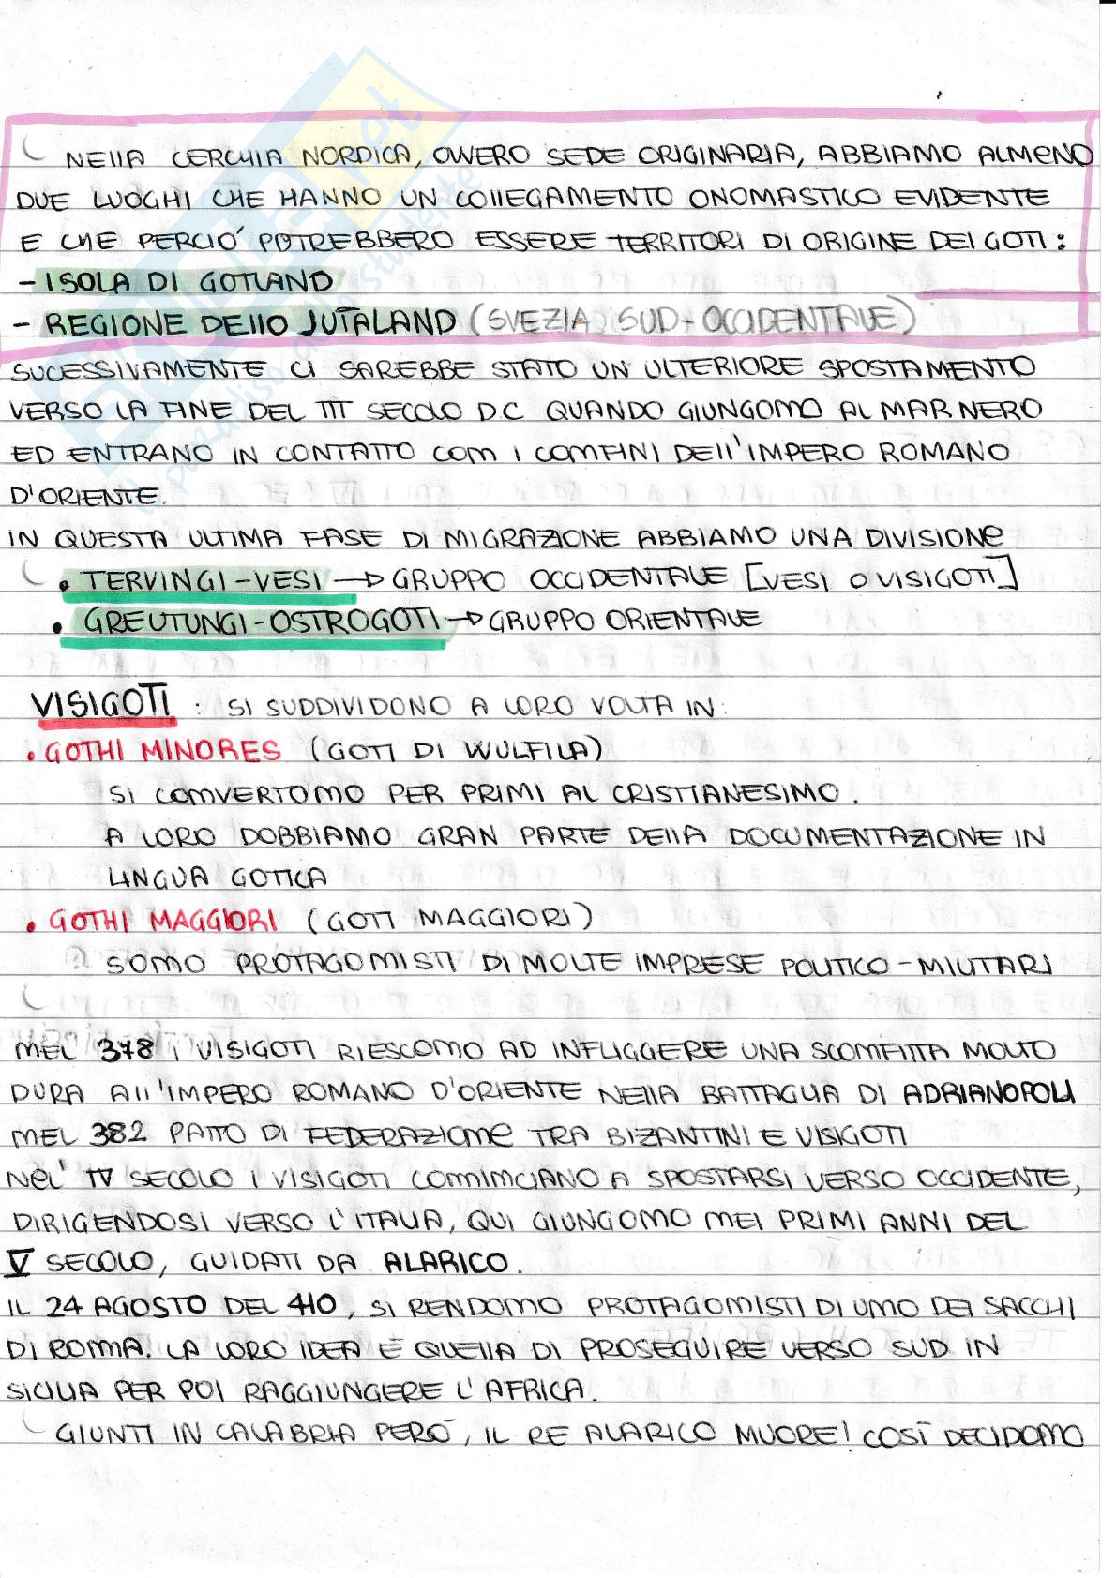 NELLA CERCHIA NORDICA, OVVERO SEDE ORIGINARIA, ABBIAMO ALMENO
DUE LUOGHI CHE HANNO UN COLLEGAMENTO ONOMASTICO EVIDENTE
E CHE PERCIÒ POTREBBERO ESSERE TERRITORI DI ORIGINE DEI GOTI:
- ISOLA DI GOTLAND
- REGIONE DELLO JUTALAND (SVEZIA SUD-OCCIDENTALE)
SUCESSIVAMENTE CI SAREBBE STATO UN ULTERIORE SPOSTAMENTO
VERSO LA FINE DEL III SECOLO D.C QUANDO GIUNGONO AL MAR NERO
ED ENTRANO IN CONTATTO CON I CONFINI DELL'IMPERO ROMANO
D'ORIENTE.
IN QUESTA ULTIMA FASE DI MIGRAZIONE ABBIAMO UNA DIVISIONE
• TERVINGI-VESI → GRUPPO OCCIDENTALE [VESI O VISIGOTI]
• GREUTUNGI-OSTROGOTI → GRUPPO ORIENTALE
VISIGOTI : SI SUDDIVIDONO A LORO VOLTA IN:
• GOTHI MINORES (GOTI DI WULFILA)
SI CONVERTONO PER PRIMI AL CRISTIANESIMO.
A LORO DOBBIAMO GRAN PARTE DELLA DOCUMENTAZIONE IN
LINGUA GOTICA
• GOTHI MAGGIORI (GOTI MAGGIORI)
SONO PROTAGONISTI DI MOLTE IMPRESE POLITICO-MILITARI
NEL 378 I VISIGOTI RIESCONO AD INFLIGGERE UNA SCONFITTA MOLTO
DURA ALL'IMPERO ROMANO D'ORIENTE NELLA BATTAGLIA DI ADRIANOPOLI
NEL 382 PATTO DI FEDERAZIONE TRA BIZANTINI E VISIGOTI
NEL IV SECOLO I VISIGOTI COMINCIANO A SPOSTARSI VERSO OCCIDENTE,
DIRIGENDOSI VERSO L'ITALIA, QUI GIUNGONO NEI PRIMI ANNI DEL
V SECOLO, GUIDATI DA ALARICO.
IL 24 AGOSTO DEL 410, SI RENDONO PROTAGONISTI DI UNO DEI SACCHI
DI ROMA. LA LORO IDEA È QUELLA DI PROSEGUIRE VERSO SUD IN
SICILIA PER POI RAGGIUNGERE L'AFRICA.
GIUNTI IN CALABRIA PERÒ, IL RE ALARICO MUORE! COSÌ DECIDONO